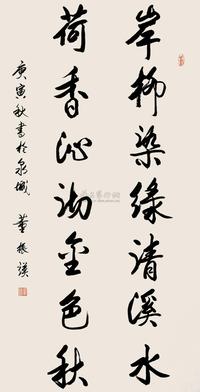 岸柳染绿清溪水
荷香沁沏金色秋
庚寅秋书于泉城 董振谟